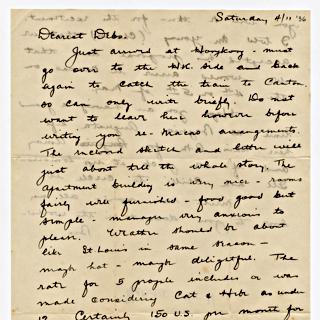 Saturday 4/11 '36
Dearest Debs:
Just arrived at Hongkong - must
go over to the HK. side and back
again to catch the train to Canton,
so can only write briefly. Do not
want to leave here however before
writing you re - Macao arrangements.
The inclosed sketch and letter will
just about tell the whole story. The
apartment building is very nice - rooms
fairly well furnished - food good but
simple - manager very anxious to
please. Weather should be about
like St. Louis in same season -
maybe hot - maybe delightful. The
rate for 5 people includes or was
made considering Cat & Hebe as under
12. Certainly 150 U.S. per month for